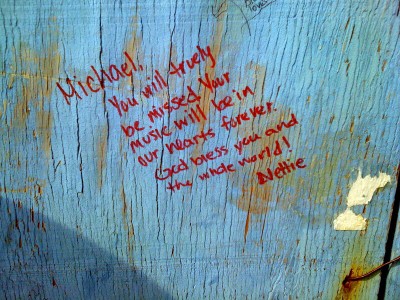 Michael,
You will truely
be missed Your
music will be in
our hearts forever.
God bless you and
the whole world!
Nettie